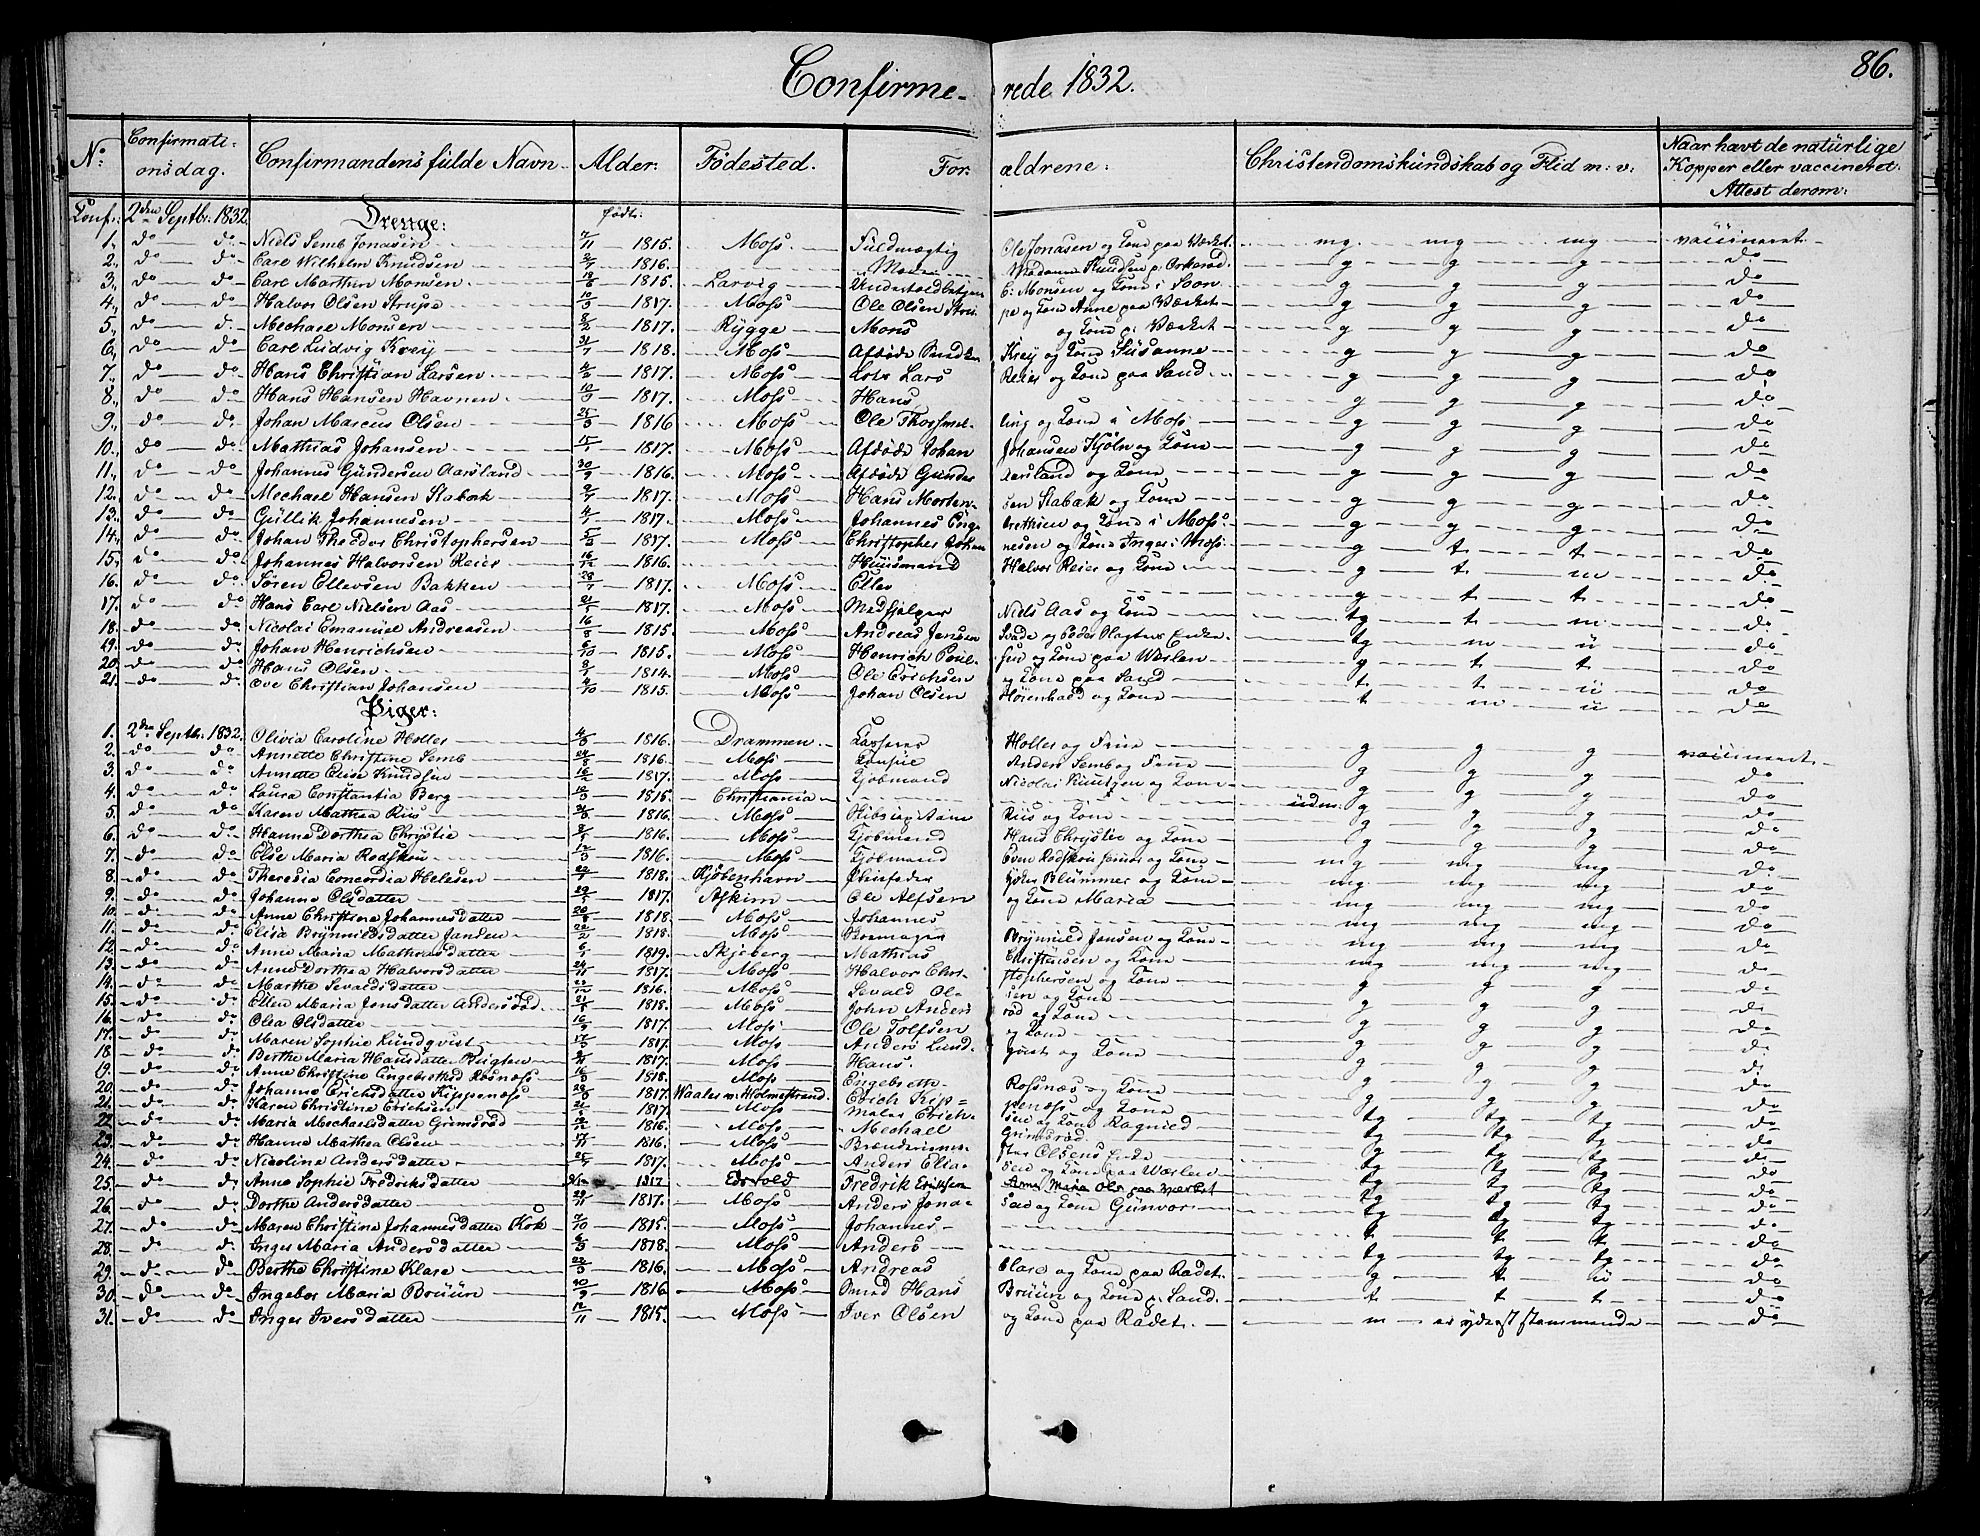 Confirme- rede 1832. 86.
No: Confirmati- onsdag. Confirmandens fulde Navn. Alder: Fødested. For- ældrene: Christendomskundskab og Flid m: v: Naar havt de natürlige Kopper eller vaccineret. Attest derom:
Conf: 2den Septbr: 1832 Drenge: født:
1. do do Niels Semb Jonasen 7/11 1815. Moss. Fuldmægtig Ole Jonasen og Kone paa Værket mg mg mg vaccineret
2. do do Carl Wilhelm Knudsen 1816. Madame Knudsen p. Orkerød. g g g do
3. do do Carl Marthin Monsen 1815. Larvig C: Monsen og Kone i Soon g g g do
4. do do Halvor Olsen Strupe 1817. Moss Ole Olsen Stru- pe og Kone Anne paa Værket g g g do
5. do do Mechael Monsen 1817. Rygge Mons og Kone p. Værket g g g do
6. do do Carl Ludvig Krey 31/7 1818. Moss Afdøde Krey og Kone Susanne g g g do
7. do do Hans Christian Larsen 1817. Moss Lars Reier og Kone paa Sand g g g do
8. do do Hans Hansen Havnen 10/9 1817. Moss Hans g g g do
9. do do Johan Marcus Olsen 1816 Moss Ole ling og Kone i Moss g g g do
10. do do Mathias Johansen 1817. Moss Afdøde Johan Johansen Kjöln og Kone g g g do
11. do do Johannes Gundersen Aarsland 30/9 1816. Moss Afdøde Gunder og Kone g g g do
12. do do Mechael Hansen Stabæk 1817. Moss Hans Morten- sen Stabæk og Kone g g g do
13. do do Gullik Johannesen 1817. Moss Johannes Enge- og Kone i Moss g g g do
14. do do Johan Theodor Christophersen 1817. Moss Christopher Johan nesen og Kone Inger i Moss g t t do
15. do do Johannes Halvorsen Reier 16/12 1816. Huusmand Halvor Reier og Kone g t m do
16. do do Søren Ellevsen Bakken 1817. Moss Ellev g t t do
17. do do Hans Carl Nielsen Aas 1817. Moss Medhjelper Niels Aas og Kone tg t m do
18. do do Nicolai Emanuel Andreasen 16/8 1815. Moss Andreas Jensen tg m ü do
19. do do Johan Henrichsen 1815. Moss Henrich Poul- sen og Kone paa Værlen g t t do
20. do do Hans Olsen 1814. Moss Ole Erichsen og Kone paa Sand t t ü do
21. do do Ove Christian Johansen 1815. Moss Johan Olsen og Kone t m ü do
Piger:
1. 2den Septbr. 1832. Olivia Caroline Holter 1816. Drammen Holter og Frue g g g vaccineret
2. do do Annette Christine Semb 1816. Moss Anders Semb og Frue g g g do
3. do do Annette Elise Knudsen 1817. Moss Kjøbmand Nicolai Knutzen og Kone g g g do
4. do do Laura Constantia Berg 1815. Christiania g g g do
5. do do Karen Mathea Rius 1816. Moss Rius og Kone g g g do
6. do do Hanne Dorthea Chrystie 1816. Moss Kjøbmand Hans Chrystie og Kone g g g do
7. do do Else Maria Rodskou 1816. Moss Kjøbmand Even Rodskou og Kone mg mg mg do
8. do do Theresia Concordia Helesen 1818. Kjøbenhavn Blummer og Kone mg mg mg do
9. do do Johanne Olsdatter 1817. Askim Ole Alfsen og Kone Maria mg mg mg do
10. do do Anne Christine Johannesdatter 1818. Moss Johannes mg mg mg do
11. do do Elisa Brynnildsdatter Jansen 1818. Moss Skomager Brynnild Jansen og Kone mg mg mg do
12. do do Anne Maria Mathiasdatter 1819. Skjeberg Mathias Christensen og Kone mg mg mg do
13. do do Anne Dorthea Halvorsdatter 24/11 1817. Moss Halvor Chri- stophersen og Kone g g g do
14. do do Marthe Sevaldsdatter 1816. Moss Sevald Ol- sen og Kone g g g do
15. do do Ellen Maria Jonsdatter Andersrød 1818. Moss John Anders rød og Kone g g g do
16. do do Olea Olsdatter 1817. Moss Ole Tolfsen og Kone g g g do
17. do do Maren Sophie Lundqvist 1817. Moss Anders Lund- qvist og Kone g g g do
18. do do Berthe Maria Hansdatter 1817. Moss Hans. g g g do
19. do do Anne Christine Engebrethsd Rosnæss 1818. Moss Engebreth Rossnæs og Kone g g g do
20. do do Johanne Erichsdatter Kippenæss 1817. Waales v. Holmestrand. Erich Kip- penæss og Kone g g g do
21. do do Karen Christine Erichsen 1817. Moss Maler Erich- sen og Kone Ragnild tg tg tg do
22. do do Maria Mechaelsdatter Grimsrød 1816. Moss Mechael Grimsrød tg tg tg do
23. do do Hanne Mathea Olsen 1816. Moss Olsens Enke tg tg tg do
24. do do Nicoline Andersdatter 1817. Moss Anders Elia- sen og Kone paa Værlen tg tg tg do
25. do do Anne Sophie Fredriksdatter 1817 Edsvold Fredrik Erichsen Anne Maria Ols paa Værket tg tg tg do
26. do do Dorthe Andersdatter 29/11 1817. Moss Anders Jona- sen og Kone Gunvor tg tg tg do
27. do do Maren Christine Johannesdatter Kok 7/10 1815. Moss Johannes t t t do
28. do do Inger Maria Andersdatter 1818. Moss Anders tg tg tg do
29. do do Berthe Christine Klare 22/3 1816. Moss Andreas Clare og Kone paa Radet. g t ü do
30. do do Ingebor Maria Bruün 1816. Moss Smed Hans Bruün og Kone p. Sand. t t t do
31. do do Inger Iversdatter 12/11 1815. Moss Iver Olsen og Kone paa Radet. m er yderst stammende do